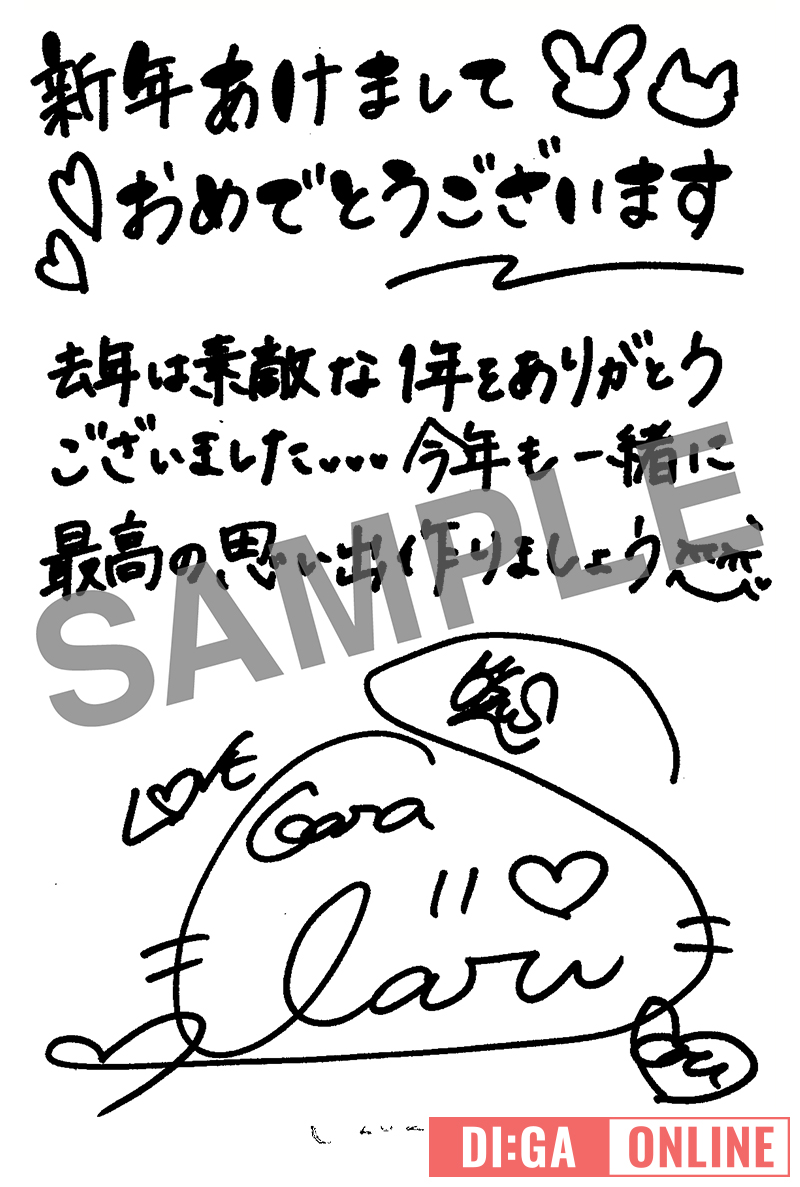 新年あけまして
おめでとうございます
去年は素敵な1年をありがとう
ございました... 今年も一緒に
最高の思い出作りましょう
SAMPLE
LOVE
Gara
laru
DI:GA ONLINE